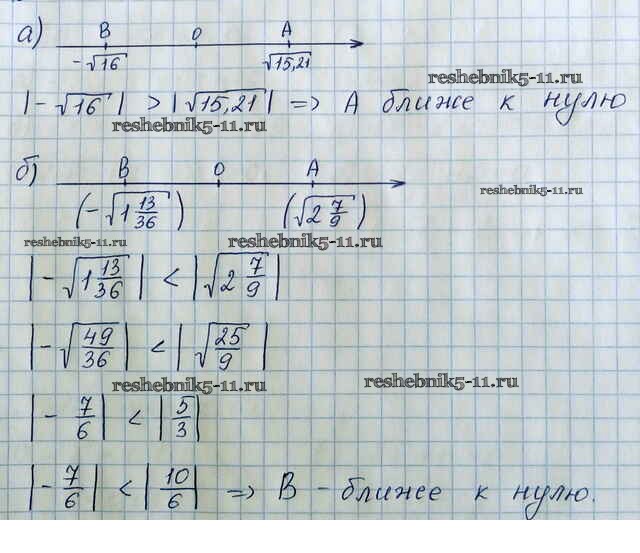 а) B O A
-√16 √15,21
reshebnik5-11.ru
|-√16| > |√15,21| => A ближе к нулю
reshebnik5-11.ru
б) B O A
reshebnik5-11.ru
(-√1 13/36) (√2 7/9)
reshebnik5-11.ru reshebnik5-11.ru
|-√1 13/36| < |√2 7/9|
|-√49/36| < |√25/9|
reshebnik5-11.ru reshebnik5-11.ru
|-7/6| < |5/3|
|-7/6| < |10/6| => B - ближе к нулю.